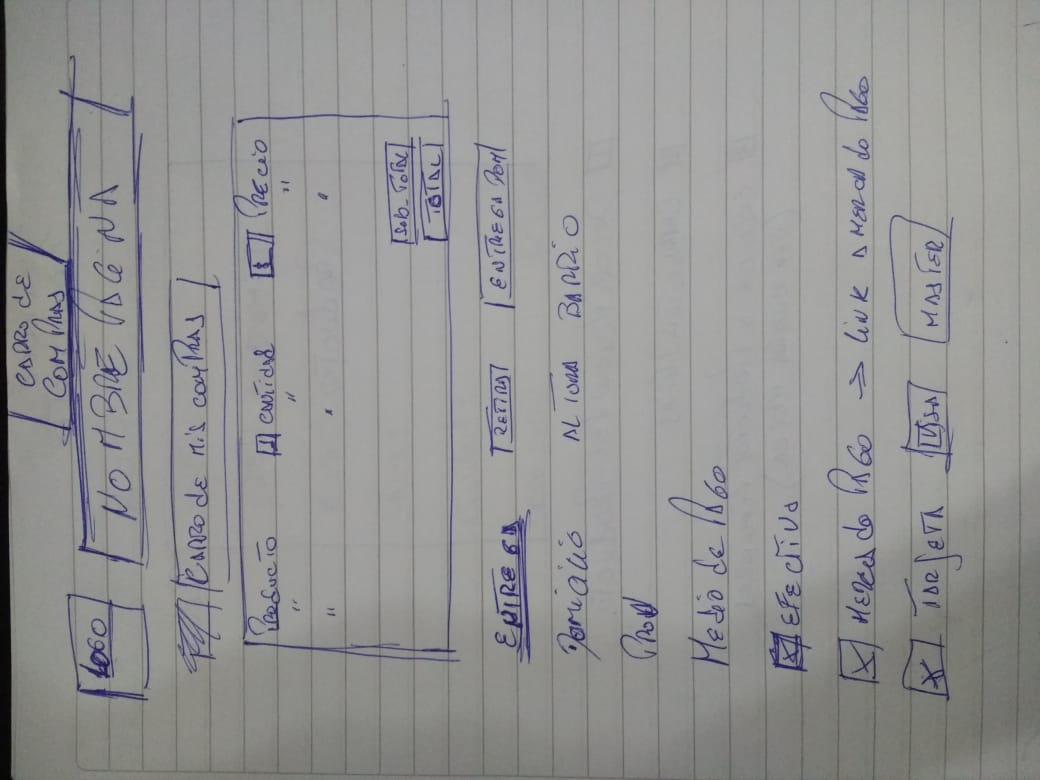 CARRO de
COMPRAS
LOGO NOMBRE PAGINA
CARRO de Mis COMPRAS
PRODUCTO 1 CANTIDAD $ PRECIO
" " "
" " "
SUB-TOTAL
TOTAL
ENTREGA RETIRA ENTREGA DOM
DOMICILIO ALTURA BARRIO
PROV
Medio de PAGO
X EFECTIVO
X MERCADO PAGO → LINK A MERCADO PAGO
X TARJETA VISA MASTER